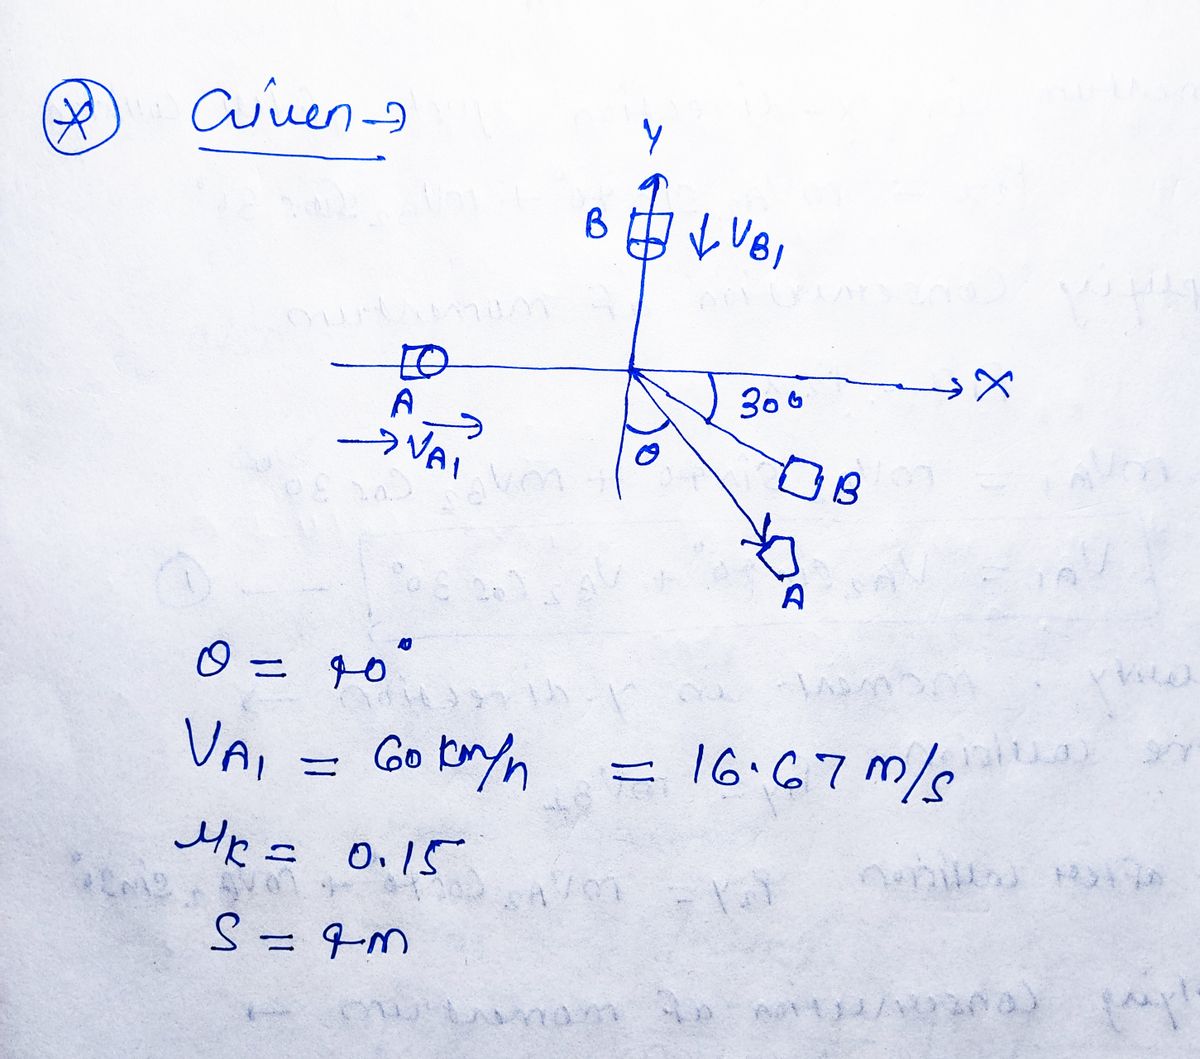 * Given →
Y
B ↓ VB1
X
30°
A
→ VA1
θ
B
A
θ = 40°
VA1 = 60 km/h = 16.67 m/s
μk = 0.15
S = 4m